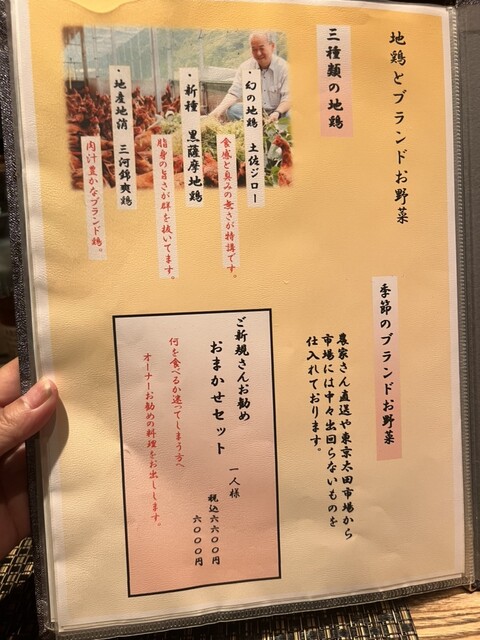 地鶏とブランドお野菜
三種類の地鶏
・幻の地鶏 土佐ジロー
食感と臭みの無さが特講です。
・新種 黒薩摩地鶏
脂身の旨さが群を抜いてます。
・地産地消 三河錦爽鶏
肉汁豊かなブランド鶏。
季節のブランドお野菜
農家さん直送や東京太田市場から
市場には中々出回らないものを
仕入れております。
ご新規さんお勧め
おまかせセット
一人様
税込六六〇〇円
六〇〇〇円
何を食べるか迷ってしまう方へ
オーナーお勧めの料理をお出しします。